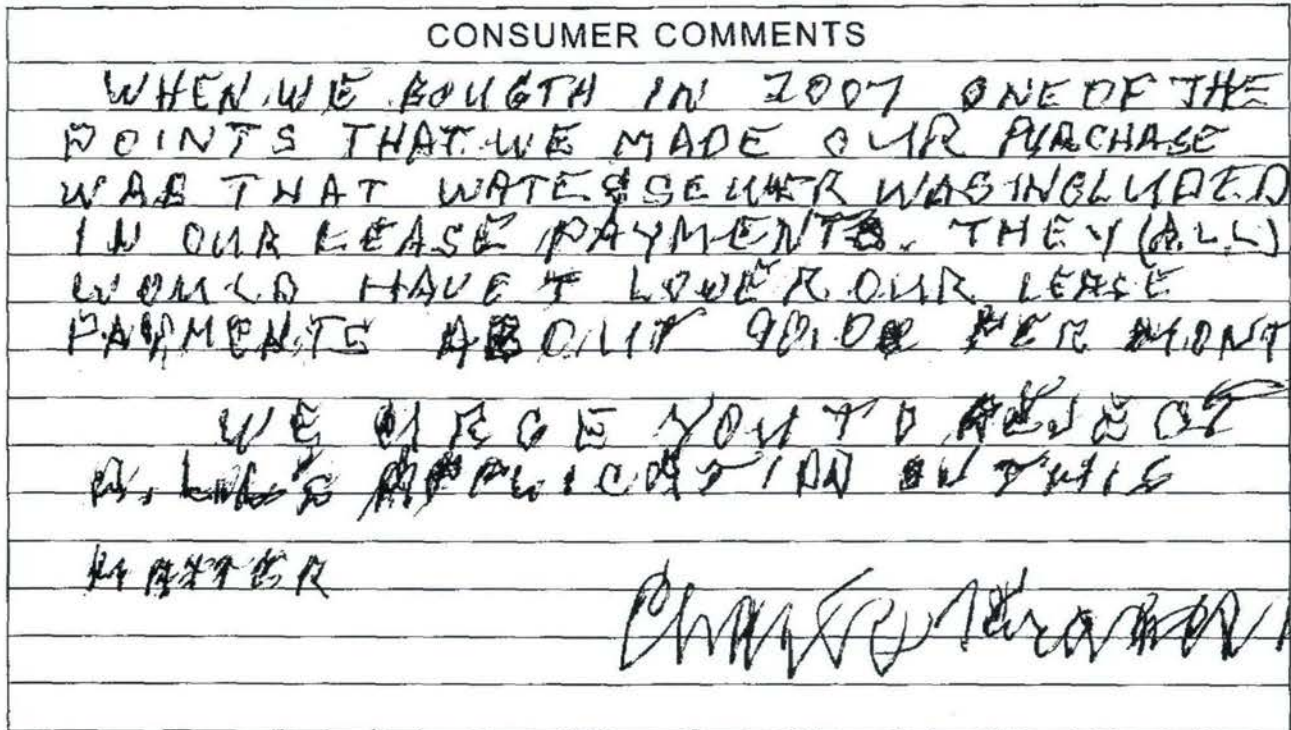 CONSUMER COMMENTS
WHEN WE BOUGTH IN 2007 ONE OF THE
POINTS THAT WE MADE OUR PURCHASE
WAS THAT WATER SEWER WAS INCLUDED
IN OUR LEASE PAYMENTS. THEY (A.L.L)
WOULD HAVE T LOWER OUR LEASE
PAYMENTS ABOUT 90.00 PER MONT
WE URGE YOU TO REJECT
A.L.L'S APPLICATION IN THIS
MATTER